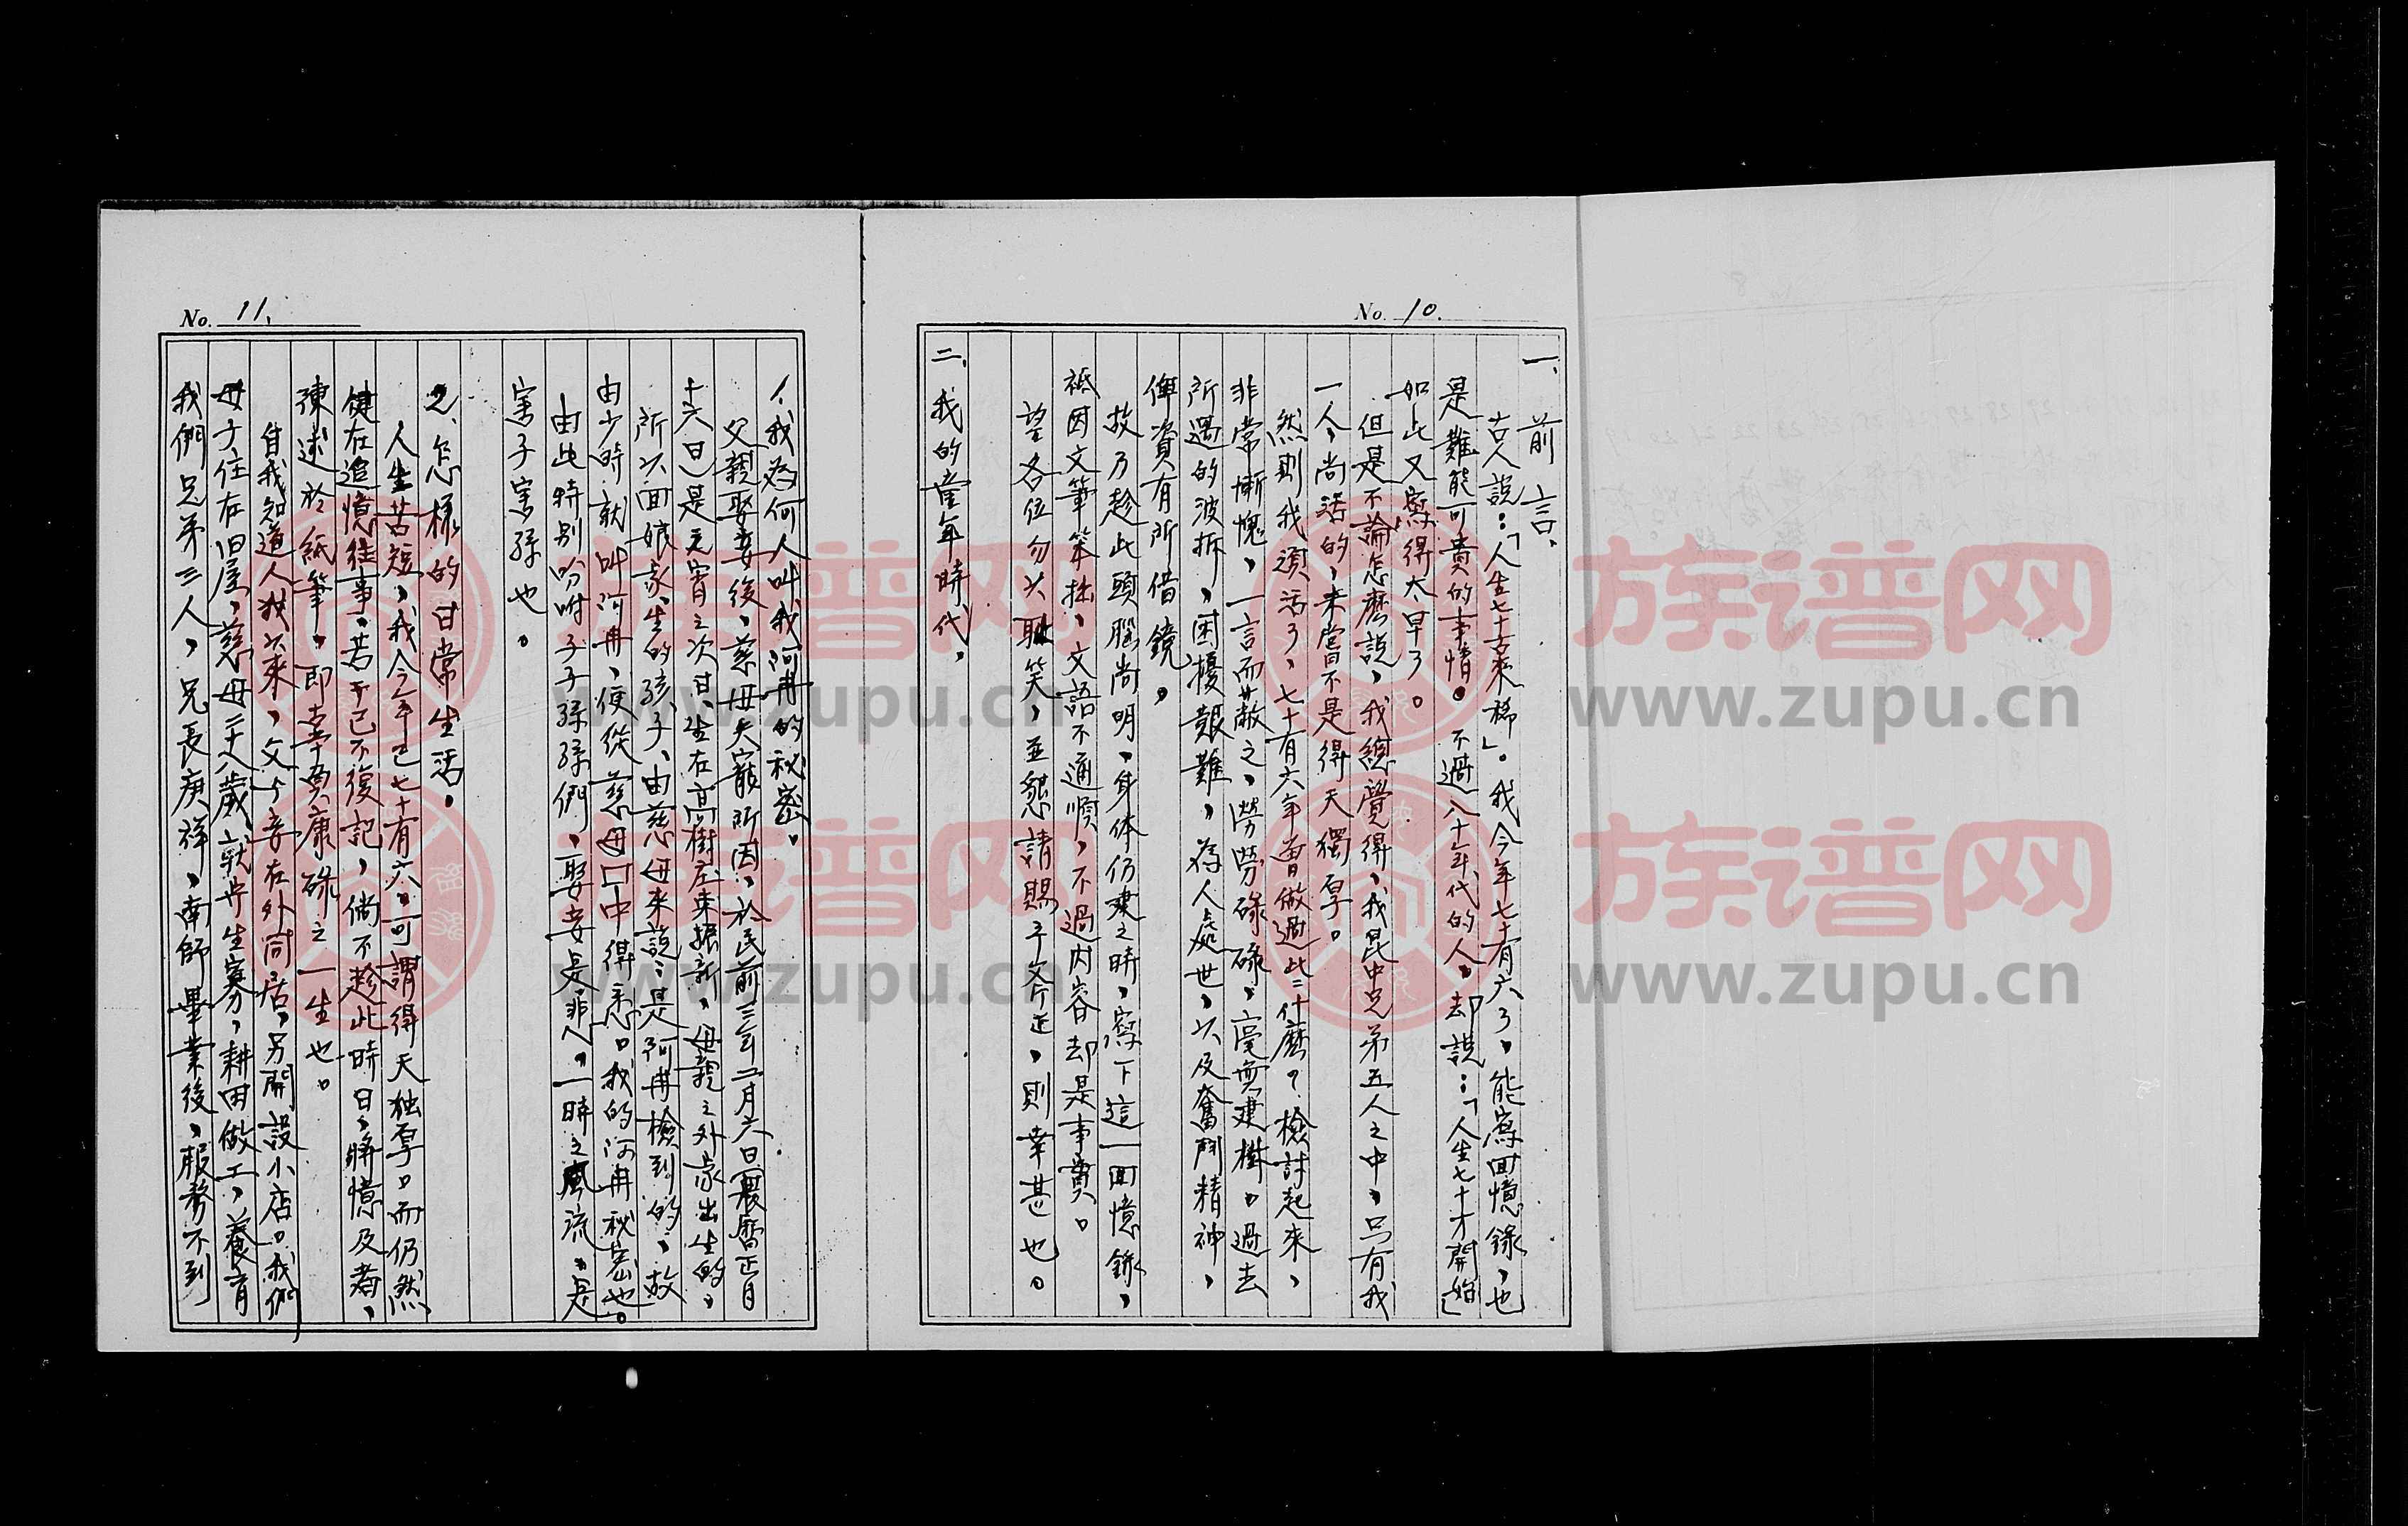 No. 10.
一、前言、
古人說：「人生七十古來稀」。我今年七十有六了，能寫回憶錄，也
是難能可貴的事情。不過八十年代的人，却說：「人生七十才開始」
如此又寫得太早了。
但是不論怎麽說，我總覺得，我昆中兄弟五人之中，只有我
一人，尚活的，未嘗不是得天獨厚。
然則我須活了，七十有六年曾做過些什麽？檢討起來，
非常慚愧，一言而蔽之，勞勞碌碌，毫無建樹。過去
所遇的波折，困擾艱難，為人處世，以及奮鬥精神，
俾資有所借鏡。
故乃趁此頭腦尚明，身体仍建之時，寫下這一回憶錄，
祗因文筆笨拙，文語不通順，不過内容却是事實。
望各位勿以耻笑，並懇請賜予斧正，則幸甚也。
二、我的童年時代，
No. 11.
1.我為何人叫我阿冉的秘密。
父親娶妾後，慈母失寵所因，於民前三年二月六日農曆正月
十六日是元宵之次日、生在高樹庄東振新，母親之外家出生的，
所以面娘家、生的孩子、由慈母來說：是阿冉檢到的，故
由少時就叫阿冉，便從慈母口中得悉。我的阿冉秘密也。
由此特别吩咐子子孫孫們，娶妾是非人，一時之風流。是
害子害孫也。
2、怎樣的日常生活，
人生苦短，我今年已七十有六，可謂得天独厚。而仍然
健在追憶往事，若干已不復記，倘不趁此時日，將憶及者，
陳述於紙筆，即幸負康碌之一生也。
自我知道人狀以來，父与妾在外同居，另開設小店。我們
母子住在旧屋，慈母二十八歲就守生寡，耕田做工，養育
我們兄弟三人，兄長庚祥，南師畢業後，服務不到
族谱网
www.zupu.cn
族谱网
www.zupu.cn
族谱网
www.zupu.cn
族谱网
www.zupu.cn